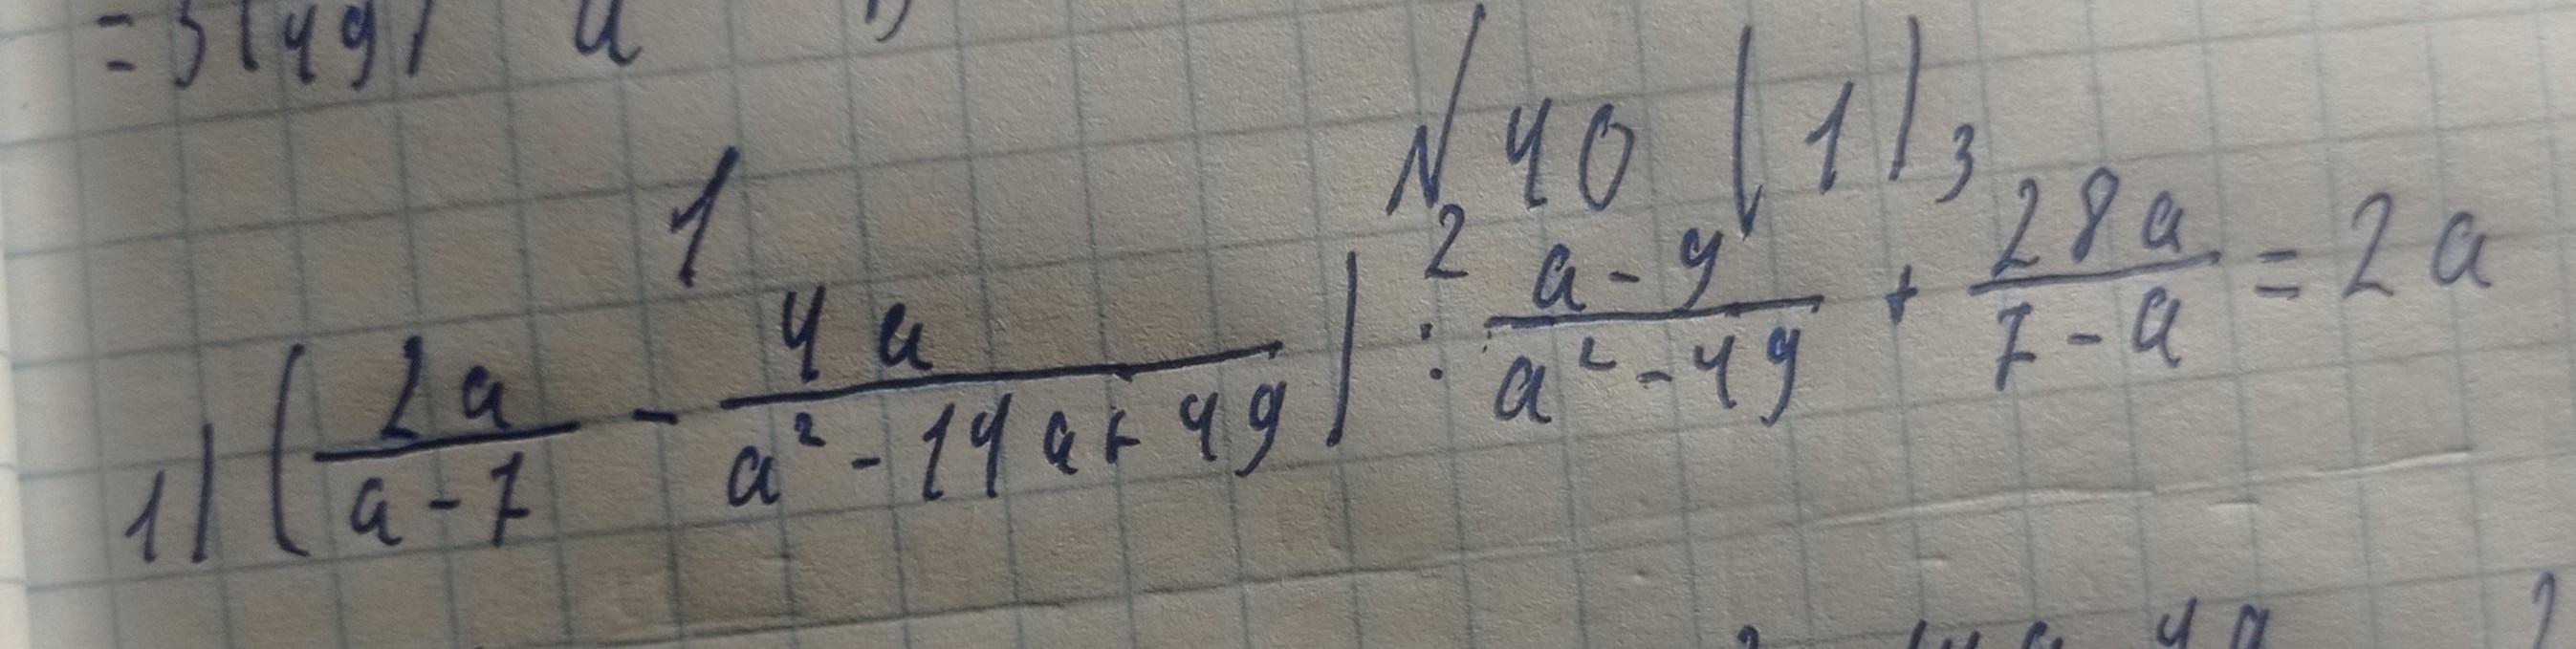 = 3(49) a
N 40 (1)
1 2 3
1) (2a/(a-7) - 4a/(a²-14a+49)) : (a-9)/(a²-49) + 28a/(7-a) = 2a